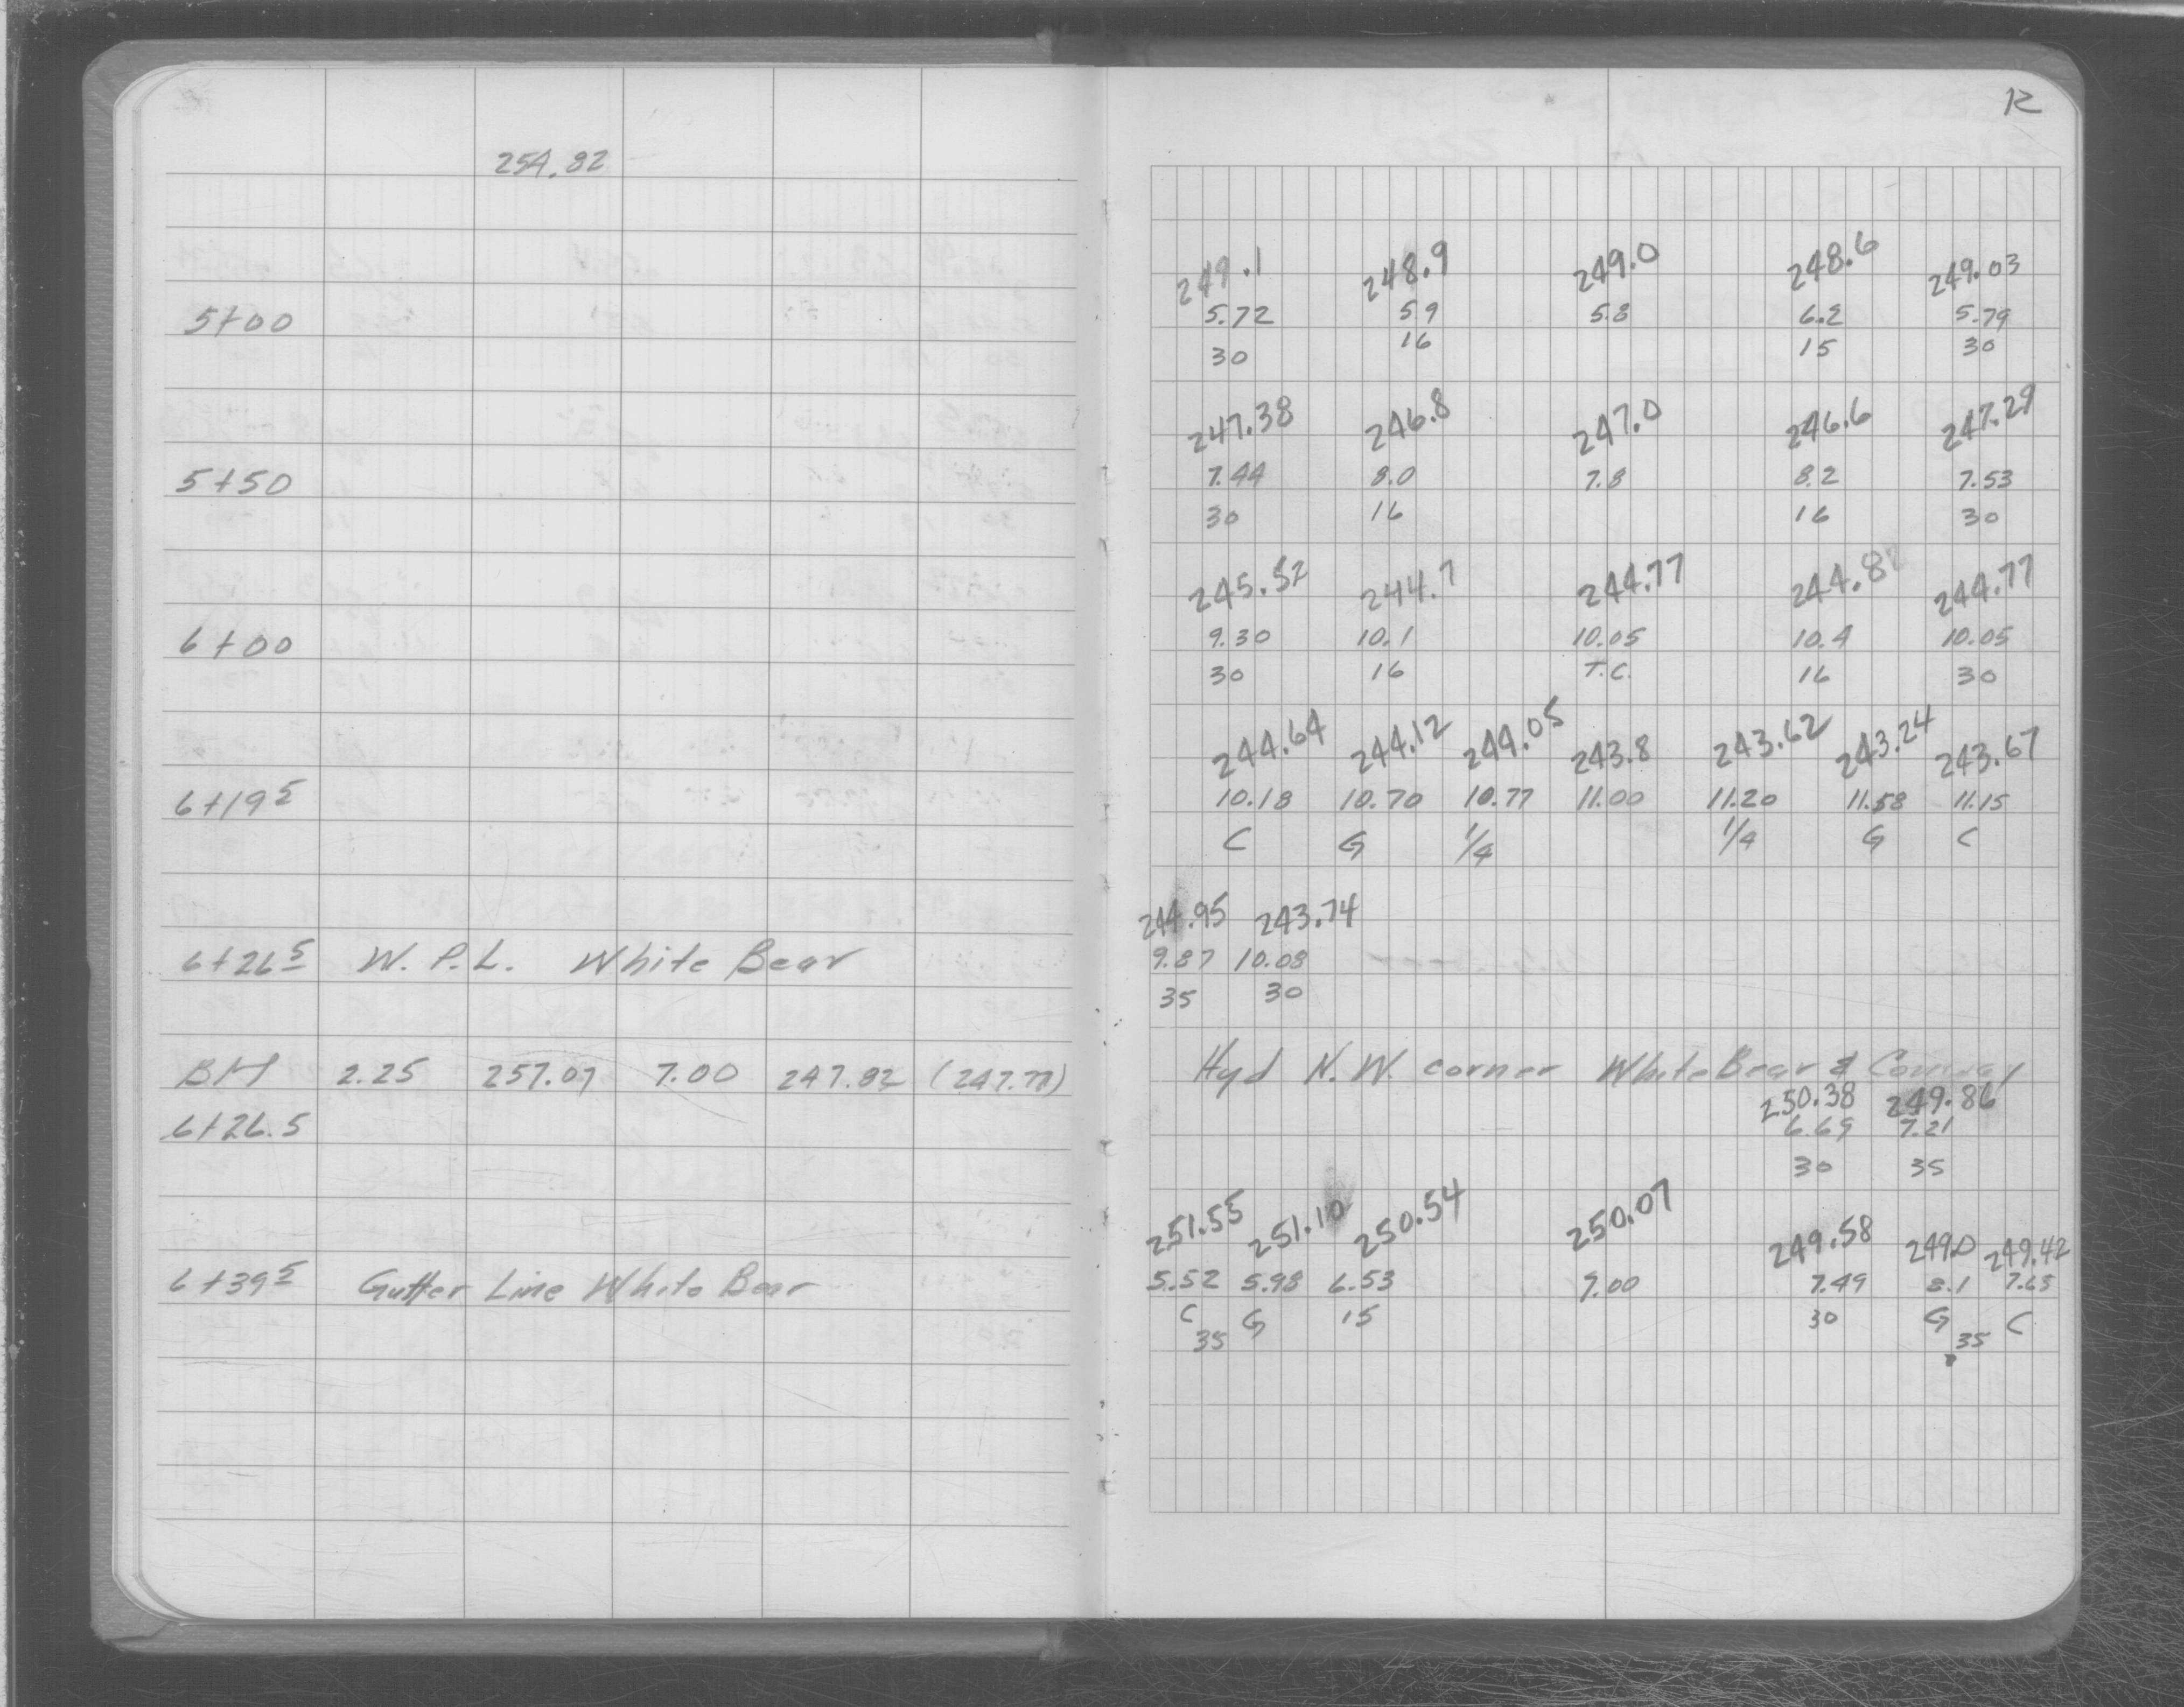 12
254.82
249.1 248.9 249.0 248.6 249.03
5+00 5.72 5.9 5.8 6.2 5.79
30 16 15 30
247.38 246.8 247.0 246.6 247.29
5+50 7.44 8.0 7.8 8.2 7.53
30 16 16 30
245.52 244.7 244.77 244.8 244.77
6+00 9.30 10.1 10.05 10.4 10.05
30 16 T.C. 16 30
244.64 244.12 244.05 243.8 243.62 243.24 243.67
6+19 5 10.18 10.70 10.77 11.00 11.20 11.58 11.15
C G 1/4 1/4 G C
244.95 243.74
6+26 5 W. P.L. White Bear 9.87 10.08
35 30
BM 2.25 257.07 7.00 247.82 (247.77) Hyd N.W. corner White Bear & Conway
250.38 249.86
6+26.5 6.69 7.21
30 35
251.55 251.10 250.54 250.07 249.58 249.0 249.42
6+39 5 Gutter Line White Bear 5.52 5.98 6.53 7.00 7.49 8.1 7.65
C G 15 30 G C
35 35